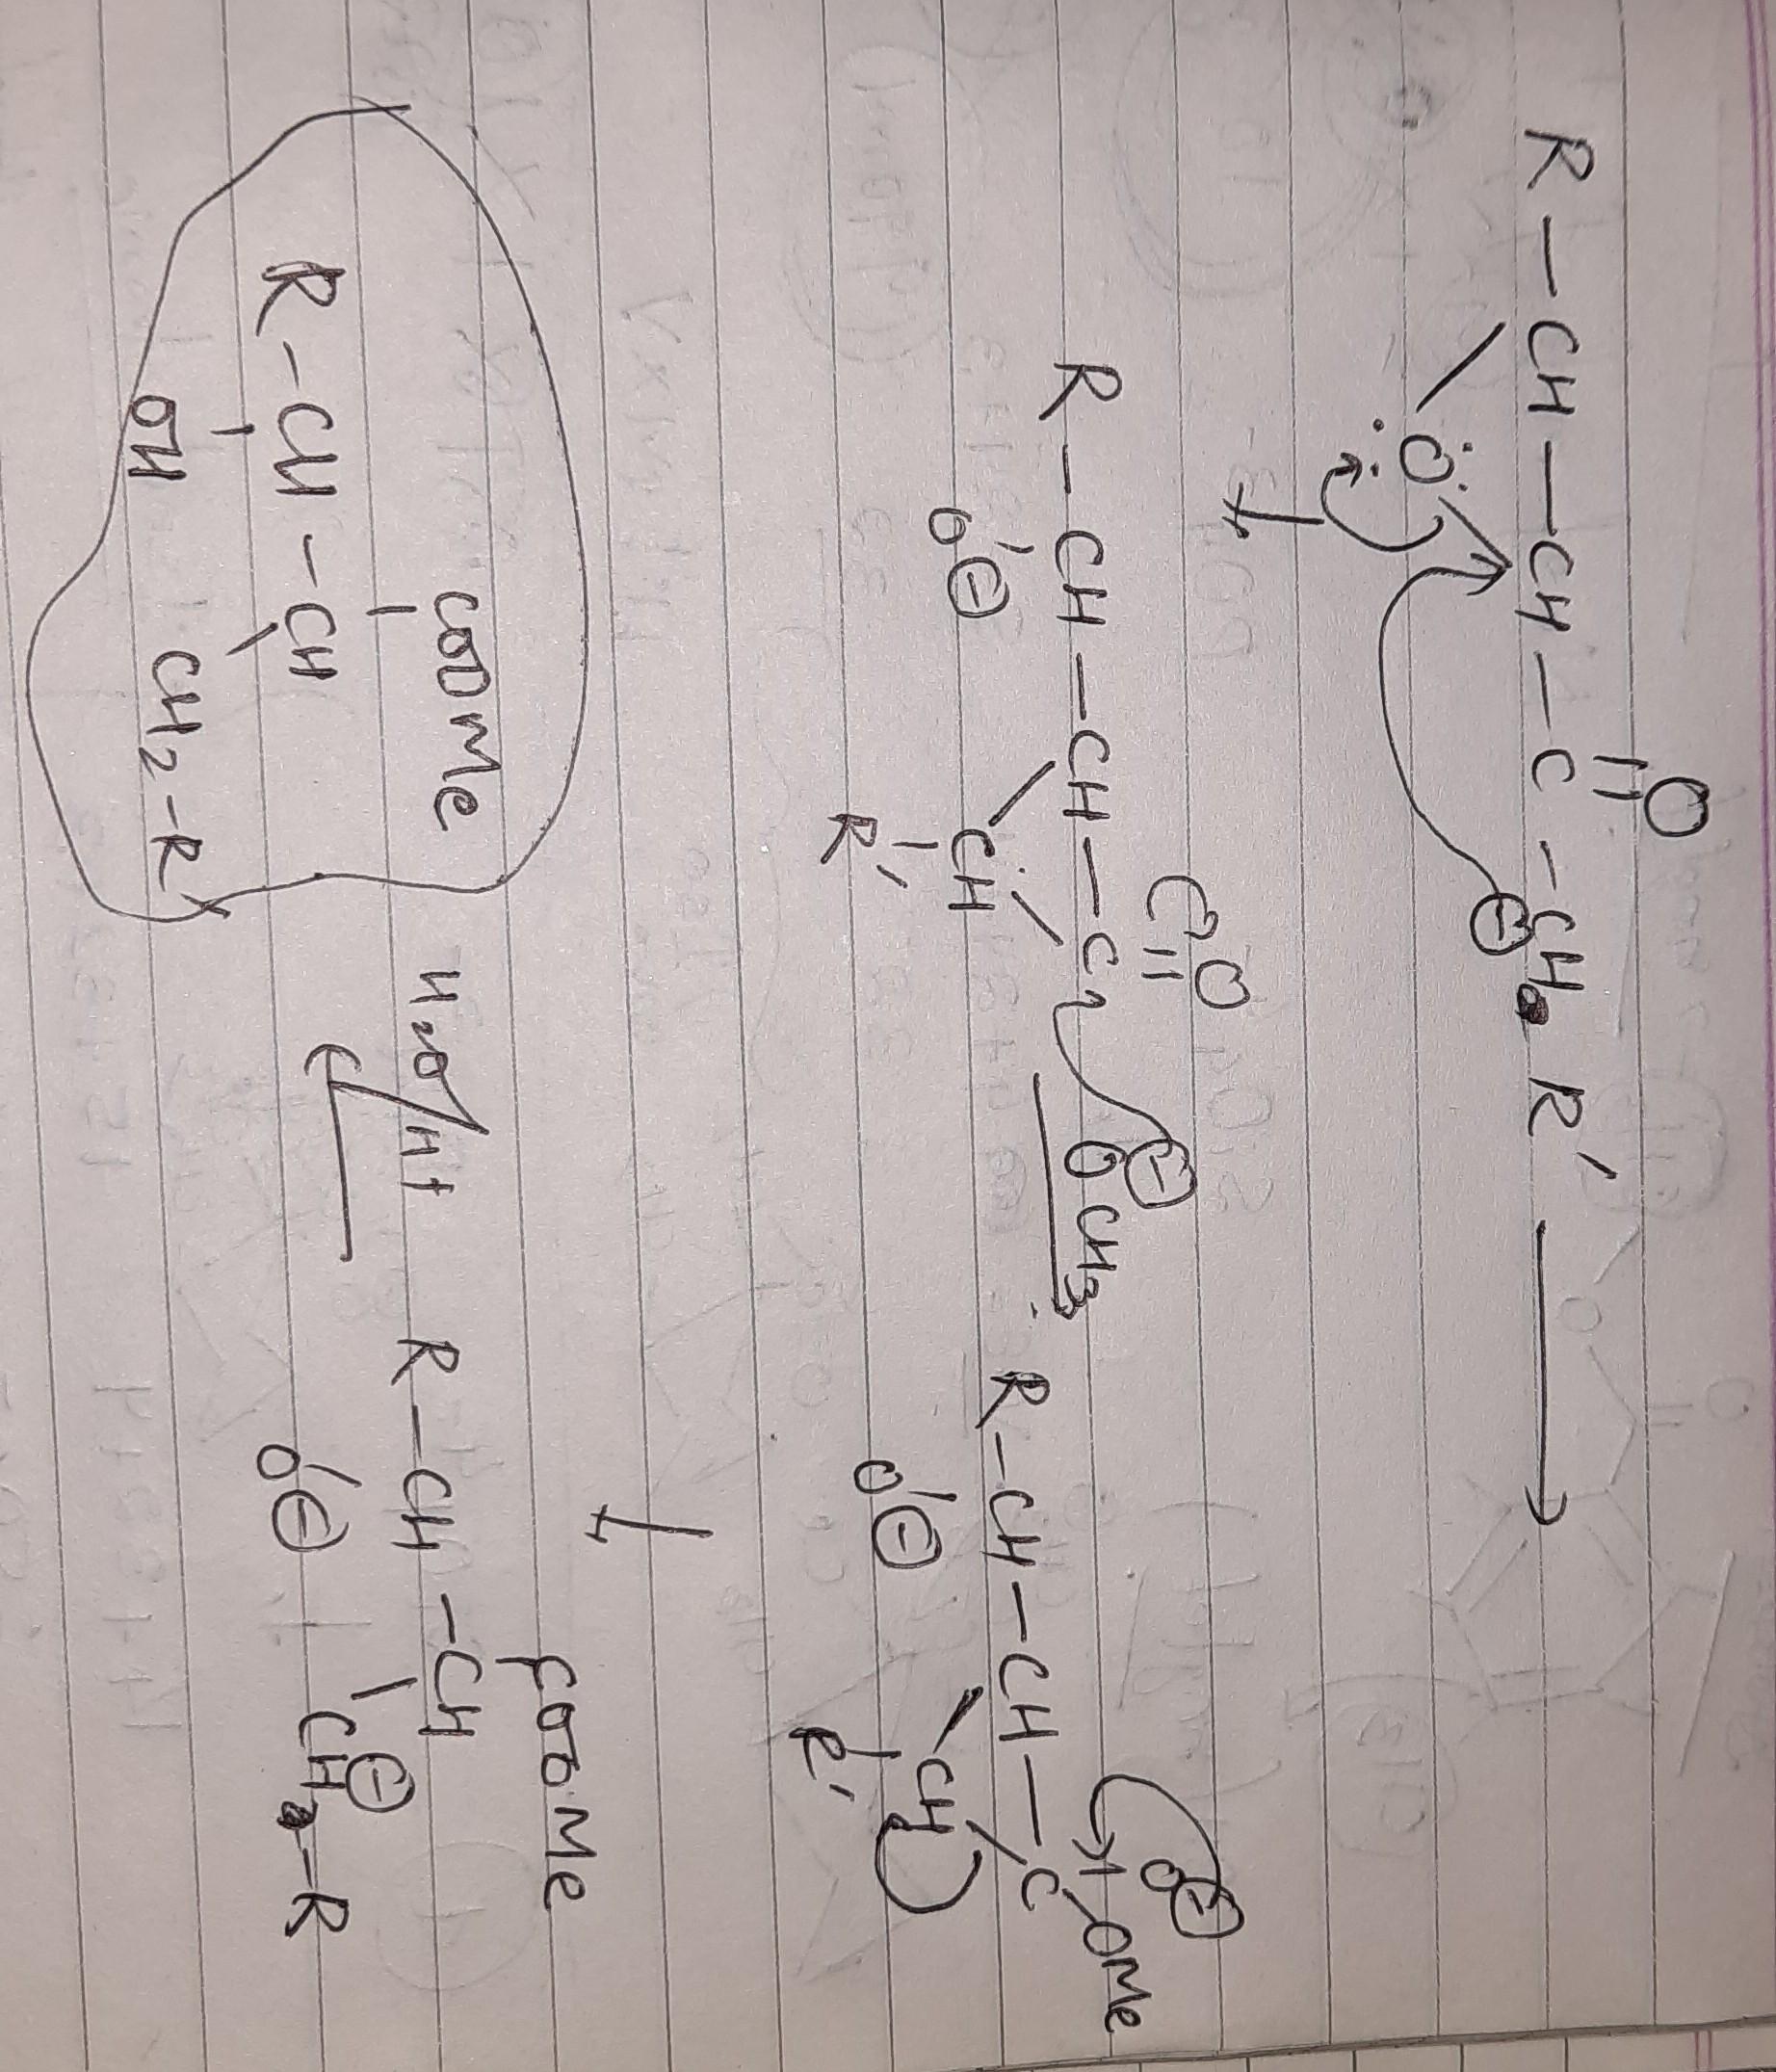 O
R — CH — CH — C — CH R'
O ⊖
O
R — CH — CH — C ⊖OCH3 R — CH — CH — C — OMe
O⊖ CH O⊖ CH O⊖
R' R'
COOMe COOMe
R — CH — CH H2O/H+ R — CH — CH
OH CH2 — R' O⊖ CH⊖ — R